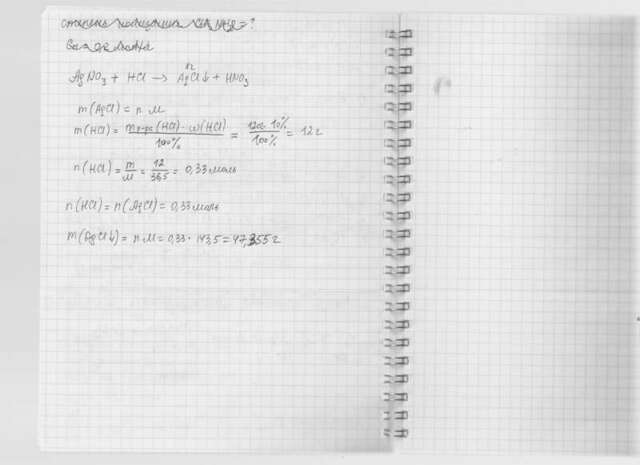 = ?
AgNO₃ + HCl → AgCl↓ + HNO₃
m(AgCl) = n · M
m(HCl) = mр-ра(HCl) · ω(HCl) / 100% = 120 · 10% / 100% = 12 г
n(HCl) = m/M = 12/36,5 = 0,33 моль
n(HCl) = n(AgCl) = 0,33 моль
m(AgCl↓) = n · M = 0,33 · 143,5 = 47,355 г